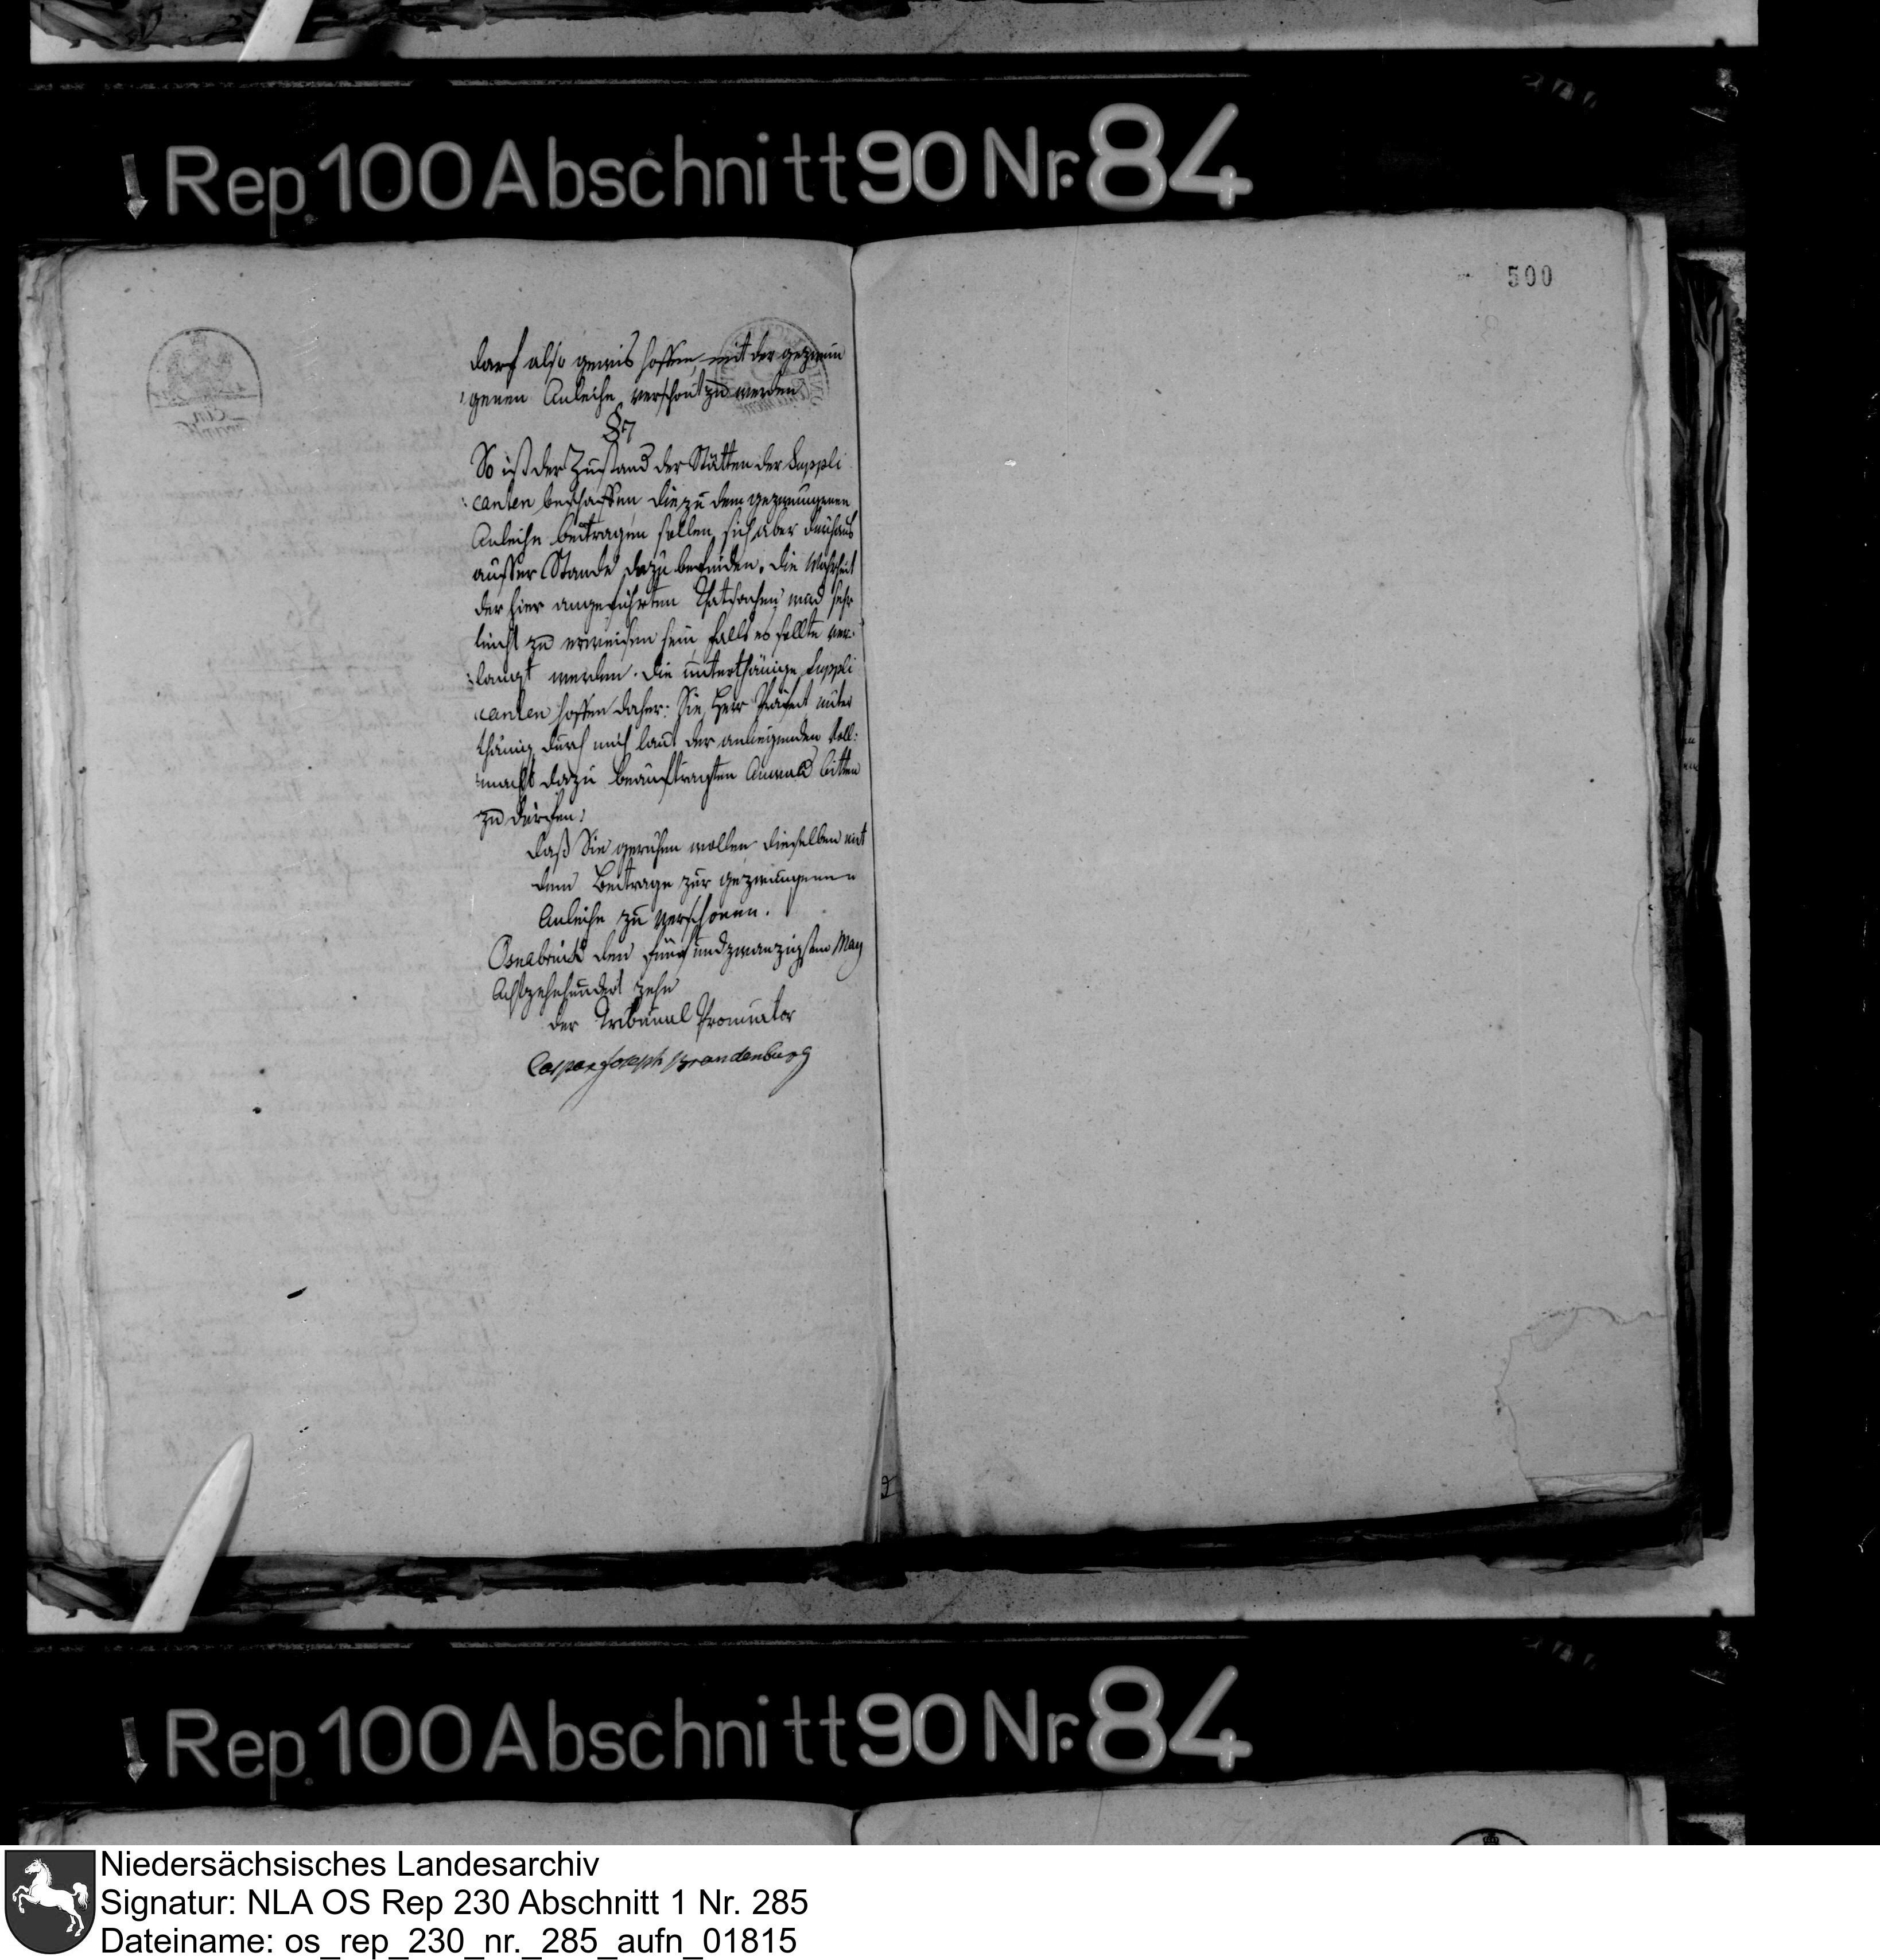 Rep. 100 Abschnitt 90 Nr. 84
500
darf also gewis hoffen, mit der gezwun
genen Anleihe verschont zu werden
§ 7
So ist der Zustand der Stätten der Suppli
canten beschaffen die zu dem gezwungenen
Anleihe beitragen sollen, sich aber durchaus
ausser Stande dazu befinden. Die Wahrheit
der hier angeführten Thatsachen wird sehr
leicht zu erweisen sein, falls es sollte ver:
:langt werden. Die unterthänige Suppli
canten hoffen daher: Sie, Herr Präfect unter
thänig durch mich laut der anliegenden Voll:
:macht dazu beauftragten Anwald bitten
zu dürfen:
daß Sie geruhen wollen dieselben mit
dem Beitrage zur gezwungenen
Anleihe zu verschonen.
Osnabrück den fünf und zwanzigsten May
Achtzehnhundert zehn
der Tribunal Procurator
Caspar Joseph Brandenburg
Rep. 100 Abschnitt 90 Nr. 84
Niedersächsisches Landesarchiv
Signatur: NLA OS Rep 230 Abschnitt 1 Nr. 285
Dateiname: os_rep_230_nr._285_aufn_01815